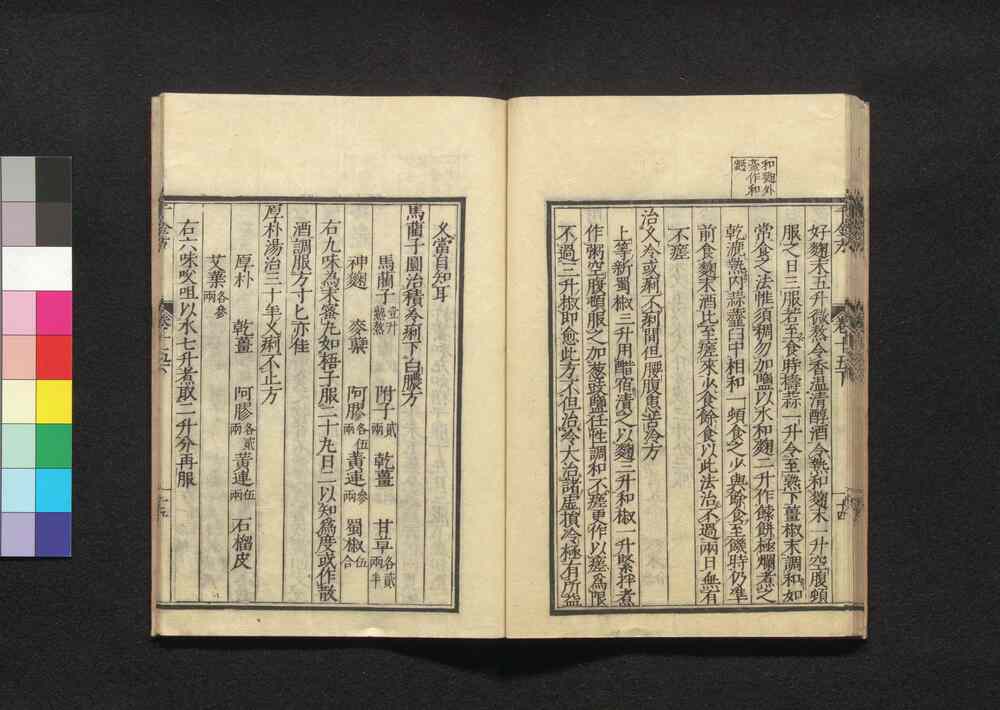 和麹外
臺作和
麪
好麹末五升微熬令香温清醇酒令熱和麹末一升空腹頓
服之日三服若至食時擣蒜一升令至熟下薑椒末調和如
常食之法惟須稠勿加鹽以水和麹二升作餺餅極爛煮之
乾漉熱内蒜虀臼中相和一頓食之少與餘食至饑時仍准
前食麹末酒比至瘥來少食餘食以此法治不過兩日無有
不瘥
治久冷或痢不痢間但腰腹患苦冷方
上等新蜀椒三升用醋宿漬之以麹三升和椒一升緊拌煮
作粥空腹頓服之加葱豉鹽任性調和不瘥更作以瘥為限
不過三升椒即愈此方不但治冷大治諸虚損冷極有所益
久當自知耳
馬藺子圓治積冷痢下白膿方
馬藺子壹升熟熬 附子貳兩 乾薑 甘草各貳兩半
神麹 麥糵 阿膠各伍兩 黄連參兩 蜀椒伍合
右九味為末蜜丸如梧子服二十丸日二以知為度或作散
酒調服方寸匕亦佳
厚朴湯治三十年久痢不止方
厚朴 乾薑 阿膠各貳兩 黄連伍兩 石榴皮
艾葉各參兩
右六味㕮咀以水七升煮取二升分再服